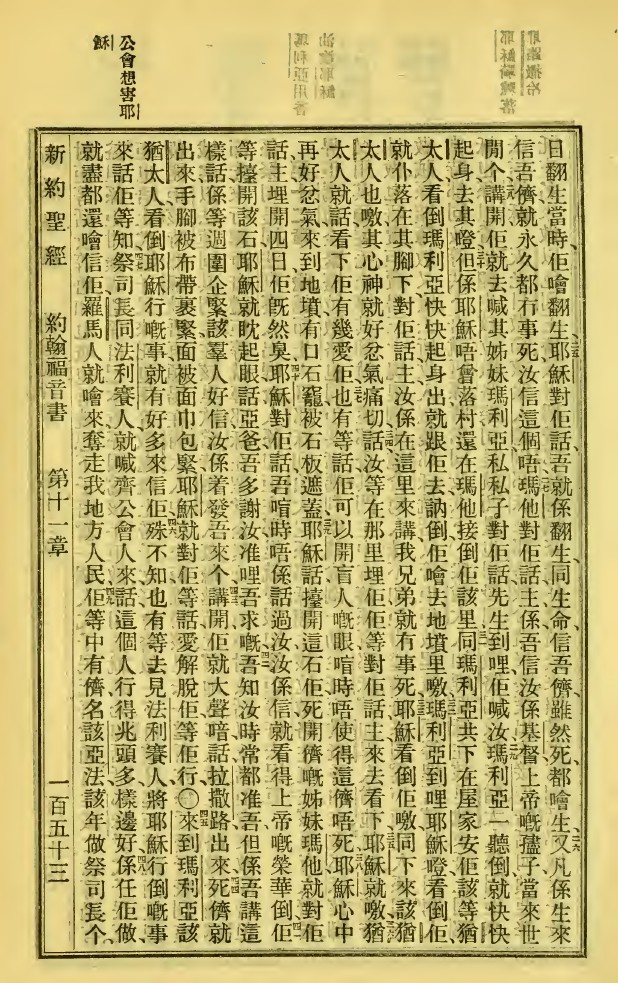 公會想害耶
穌
日翻生當時佢噲翻生耶穌對佢話吾就係翻生同生命信吾儕雖然死都噲生又凡係生來
信吾儕就永久都冇事死汝信這個唔瑪他對佢話主係吾信汝係基督上帝嘅孻子當來世
間个講開佢就去喊其姊妹瑪利亞私私子對佢話先生到哩佢喊汝瑪利亞一聽倒就快快
起身去其嶝但係耶穌唔曾落村還在瑪他接倒佢該里同瑪利亞共下在屋家安佢該等猶
太人看倒瑪利亞快快起身出就跟佢去訥倒佢噲去地墳里噭瑪利亞到哩耶穌嶝看倒佢
就仆落在其腳下對佢話主汝係在這里來講我兄弟就冇事死耶穌看倒佢噭同下來該猶
太人也噭其心神就好忿氣痛切話汝等在那里埋佢佢等對佢話主來去看下耶穌就噭猶
太人就話看下佢有幾愛佢也有等話佢可以開盲人嘅眼喧時唔使得這儕唔死耶穌心中
再好忿氣來到地墳有口石竈被石板遮蓋耶穌話擡開這石佢死開儕嘅姊妹瑪他就對佢
話主埋開四日佢既然臭耶穌對佢話吾喧時唔係話過汝汝係信就看得上帝嘅榮華倒佢
等擡開該石耶穌就眈起眼話亞爸吾多謝汝准哩吾求嘅吾知汝時常都准吾但係吾講這
樣話係等週圍企緊該羣人好信汝係着發吾來个講開佢就大聲喑話拉撒路出來死儕就
出來手腳被布帶裹緊面被面巾包緊耶穌就對佢等話愛解脫佢等佢行〇來到瑪利亞該
猶太人看倒耶穌行嘅事就有好多來信佢殊不知也有等去見法利賽人將耶穌行倒嘅事
來話佢等知祭司長同法利賽人就喊齊公會人來話這個人行得兆頭多樣邊好係任佢做
就盡都還噲信佢羅馬人就噲來奪走我地方人民佢等中有儕名該亞法該年做祭司長个
新約聖經 約翰福音書 第十一章 一百五十三